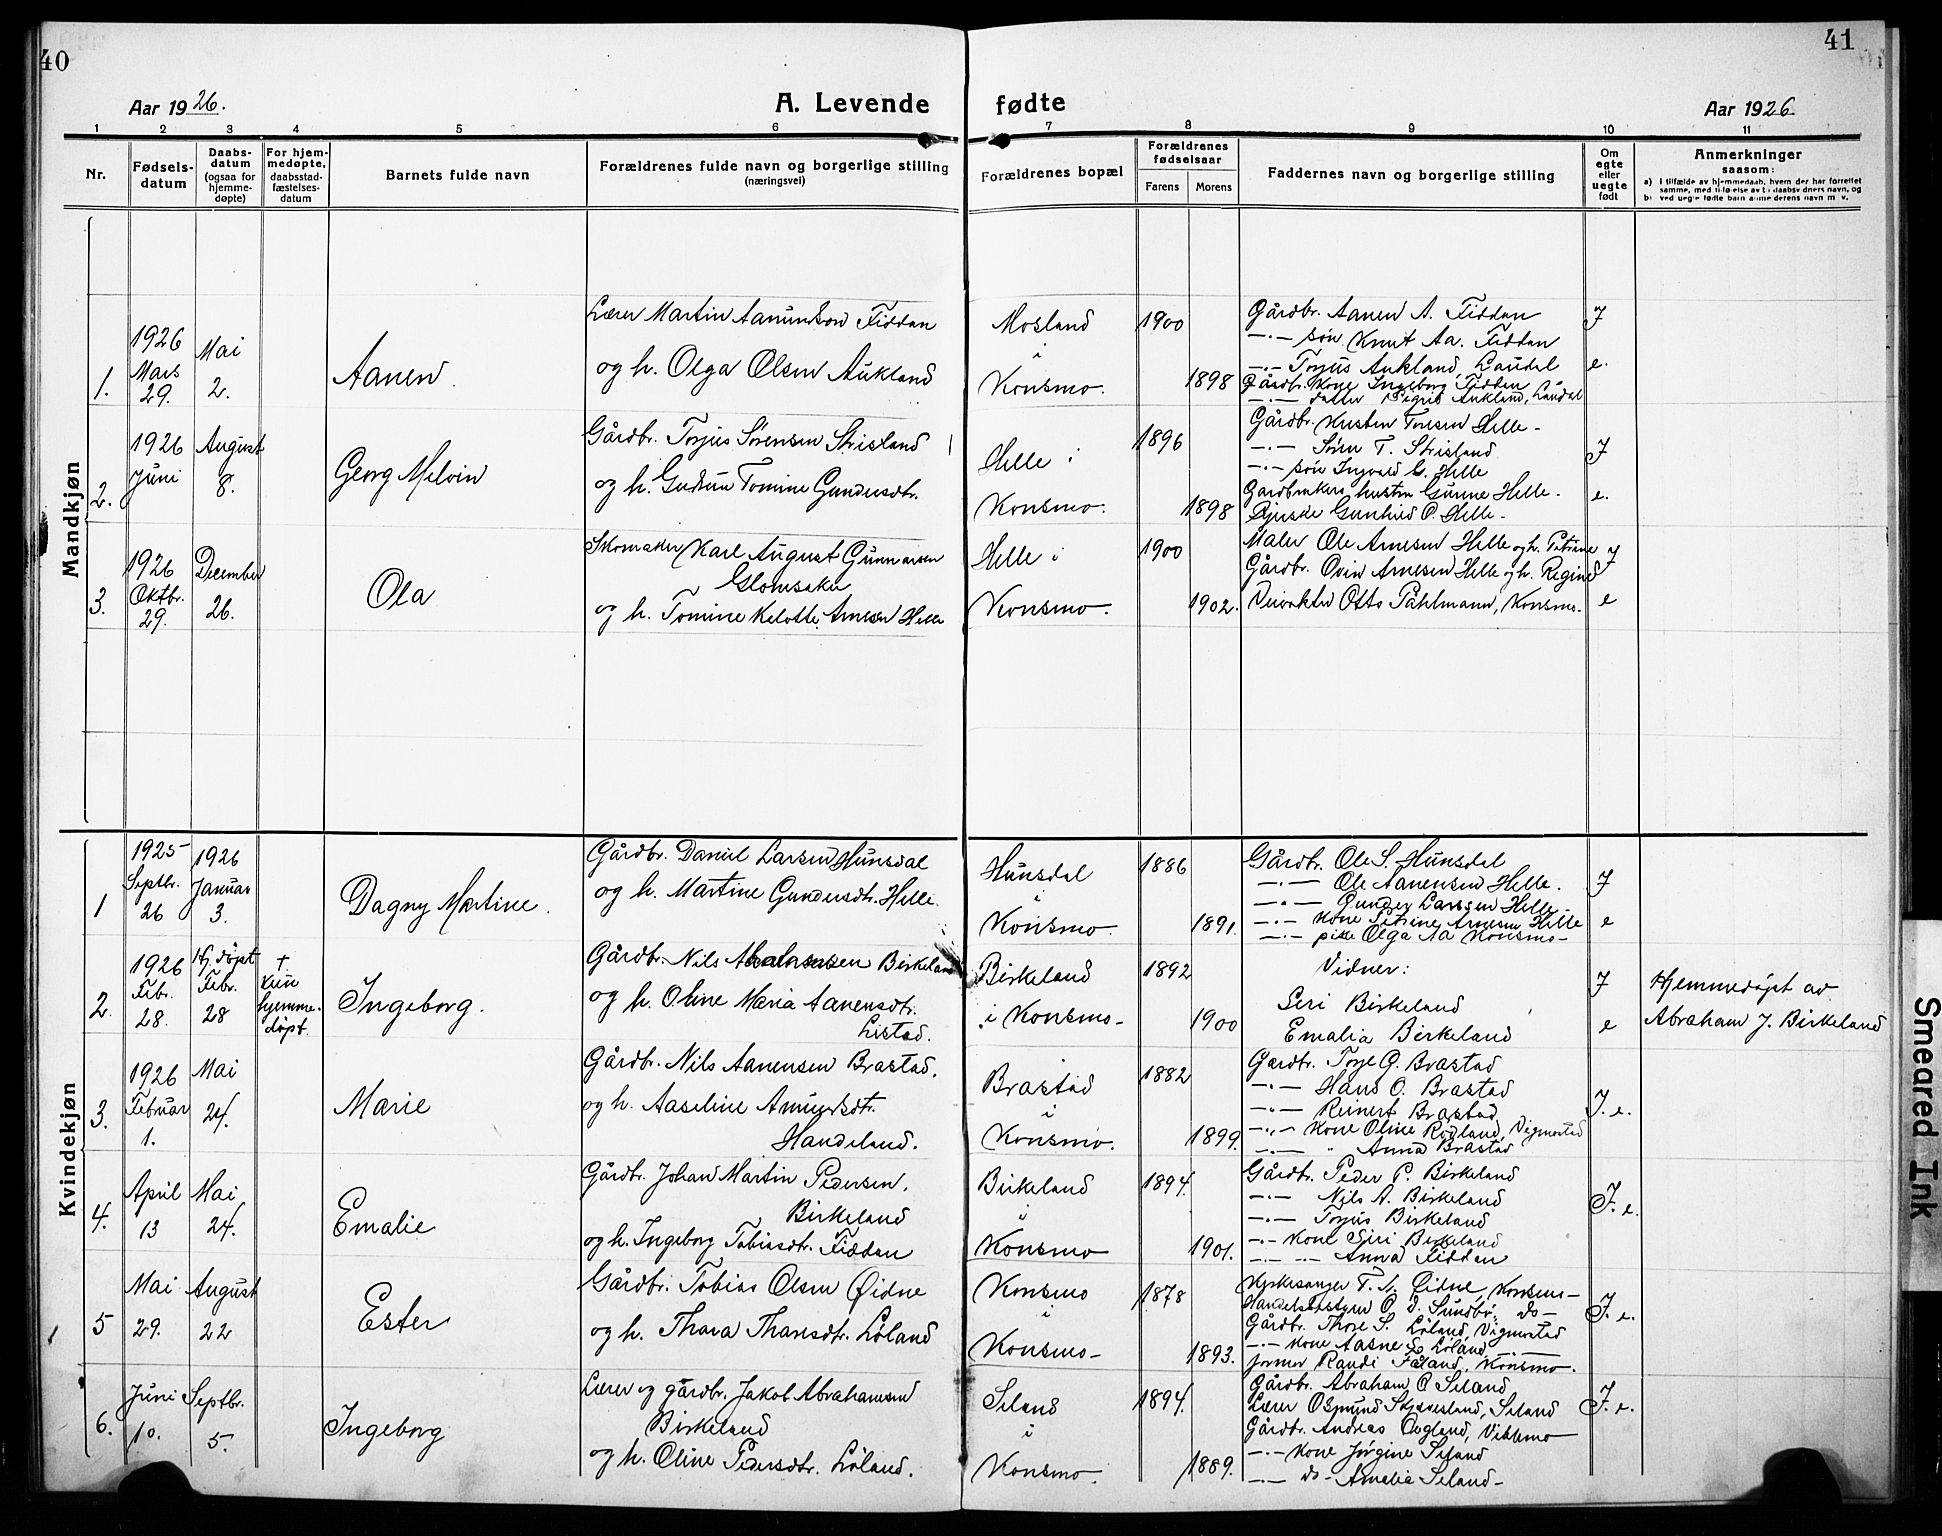 40
41
Aar 1926.
A. Levende fødte
Aar 1926
1 2 3 4 5 6 7 8 9 10 11
Nr.
Fødsels-
datum
Daabs-
datum
(ogsaa for
hjemme-
døpte)
For hjem-
medøpte,
daabsstad-
fæstelses-
datum
Barnets fulde navn
Forældrenes fulde navn og borgerlige stilling
(næringsvei)
Forældrenes bopæl
Forældrenes
fødselsaar
Farens
Morens
Faddernes navn og borgerlige stilling
Om
egte
eller
uegte
født
Anmerkninger
saasom:
a) I tilfælde av hjemmedaab, hvem der har forrettet
samme, med tilføielse av to daabsvidners navn, og
b) ved uegte fødte barn anmelderens navn m. v.
Mandkjøn
1.
1926
Mars
29.
Mai
2.
Aanen.
Lærer Martin Aanundson Fiddan
og h. Olga Olsen Aukland
Mosland
i
Konsmo.
1900
1898
Gårdbr. Aanen A. Fiddan
—·— søn Knut Aa. Fiddan
—·— Torjus Aukland, Laudal
Gårdbr. kone Ingeborg Fiddan
—·— datter Sigrid Aukland, Laudal
J
e.
2.
1926
Juni
August
8.
Georg Melvin
Gårdbr. Torjus Sørensen Strisland
og h. Gudrun Tomine Gundersdtr.
Helle i
Konsmo.
1896
1898
Gårdbr. Kristen Toresen Helle -
—·— Søren T. Strisland
—·— søn Ingvald G. Helle
Gardbrukers hustru Gunne Helle -
Pjuske Gunhild O. Helle -
J
e.
3.
1926
Oktbr.
29.
December
26.
Ola
Skomaker Karl August Gunnarsen
Glomsaker
og h. Tomine Kelotte Arnesen Helle
Helle i
Konsmo.
1900
1902.
Maler Ole Arnesen Helle og h. Petrine
Gårdbr. Ovin Arnesen Helle og h. Regine
Otto Pahlmann, Konsmo.
J
e
Kvindekjøn
1
1925
Septbr.
26
1926
Januar
3.
Dagny Martine.
Gårdbr. Daniel Larsen Hunsdal
og h. Martine Gundersdtr. Helle.
Hunsdal
i
Konsmo.
1886
1891.
Gårdbr. Ole S. Hunsdal
—·— Ole Aanensen Helle.
—·— Gunder Larsen Helle -
—·— kone Petrine Arnesen Helle
—·— pike Olga Aa Konsmo -
J
e
2.
1926
Febr.
28.
Hj. døpt
Febr.
28
†
Kun
hjemme-
døpt
Ingeborg.
Gårdbr. Nils Abrahamsen Birkeland
og h. Oline Maria Aanensdtr.
Listad.
Birkeland
i Konsmo -
1892
1900
Vidner:
Siri Birkeland
Emalia Birkeland
J
e
Hjemmedøpt av
Abraham J. Birkeland
3.
1926
Februar
1.
Mai
24.
Marie
Gårdbr. Nils Aanensen Brastad.
og h. Aaseline Amundsdtr.
Handeland.
Brastad
i
Konsmo.
1882
1899.
Gårdbr. Torje G. Brastad
—·— Hans O. Brastad
—·— Reinert Brastad
—·— kone Oline Rødland, Vigmostad
—·— " Anna Brastad
J. e.
4.
April
13
Mai
24.
Emalie
Gårdbr. Johan Martin Pedersen,
Birkeland
og h. Ingeborg Tobiasdtr. Fiddan
Birkeland
i
Konsmo
1894.
1901.
Gårdbr. Peder P. Birkeland
—·— Nils A. Birkeland
—·— Torjus Birkeland
—·— kone Siri Birkeland
—·— —·— Anna Fiddan
J. e.
5
Mai
29.
August
22
Ester
Gårdbr. Tobias Olsen Øidne
og h. Thara Tharesdtr. Løland
Konsmo
i
Konsmo -
1878
1893.
Kirkesanger T. N. Øidne, Konsmo -
Handelsbestyrer O. D. Sundbø, do -
Gårdbr. Thore S. Løland, Vigmostad
—·— kone Aasne Løland —·—
Jormor Randi Faland, Konsmo.
J. e.
6.
Juni
10.
Septbr.
5.
Ingeborg
Lærer og gårdbr. Jakob Abrahamsen
Birkeland
og h. Oline Pedersdtr. Løland.
Seland
i
Konsmo.
1894.
1889.
Gårdbr. Abraham O Seland
Lærer Osmund Stjavesland, Seland
Gårdbr. Andreas Ougland, Viblemo
—·— kone Jørgine Seland
—·— do - Amalia Seland -
J. e.
Smeared Ink